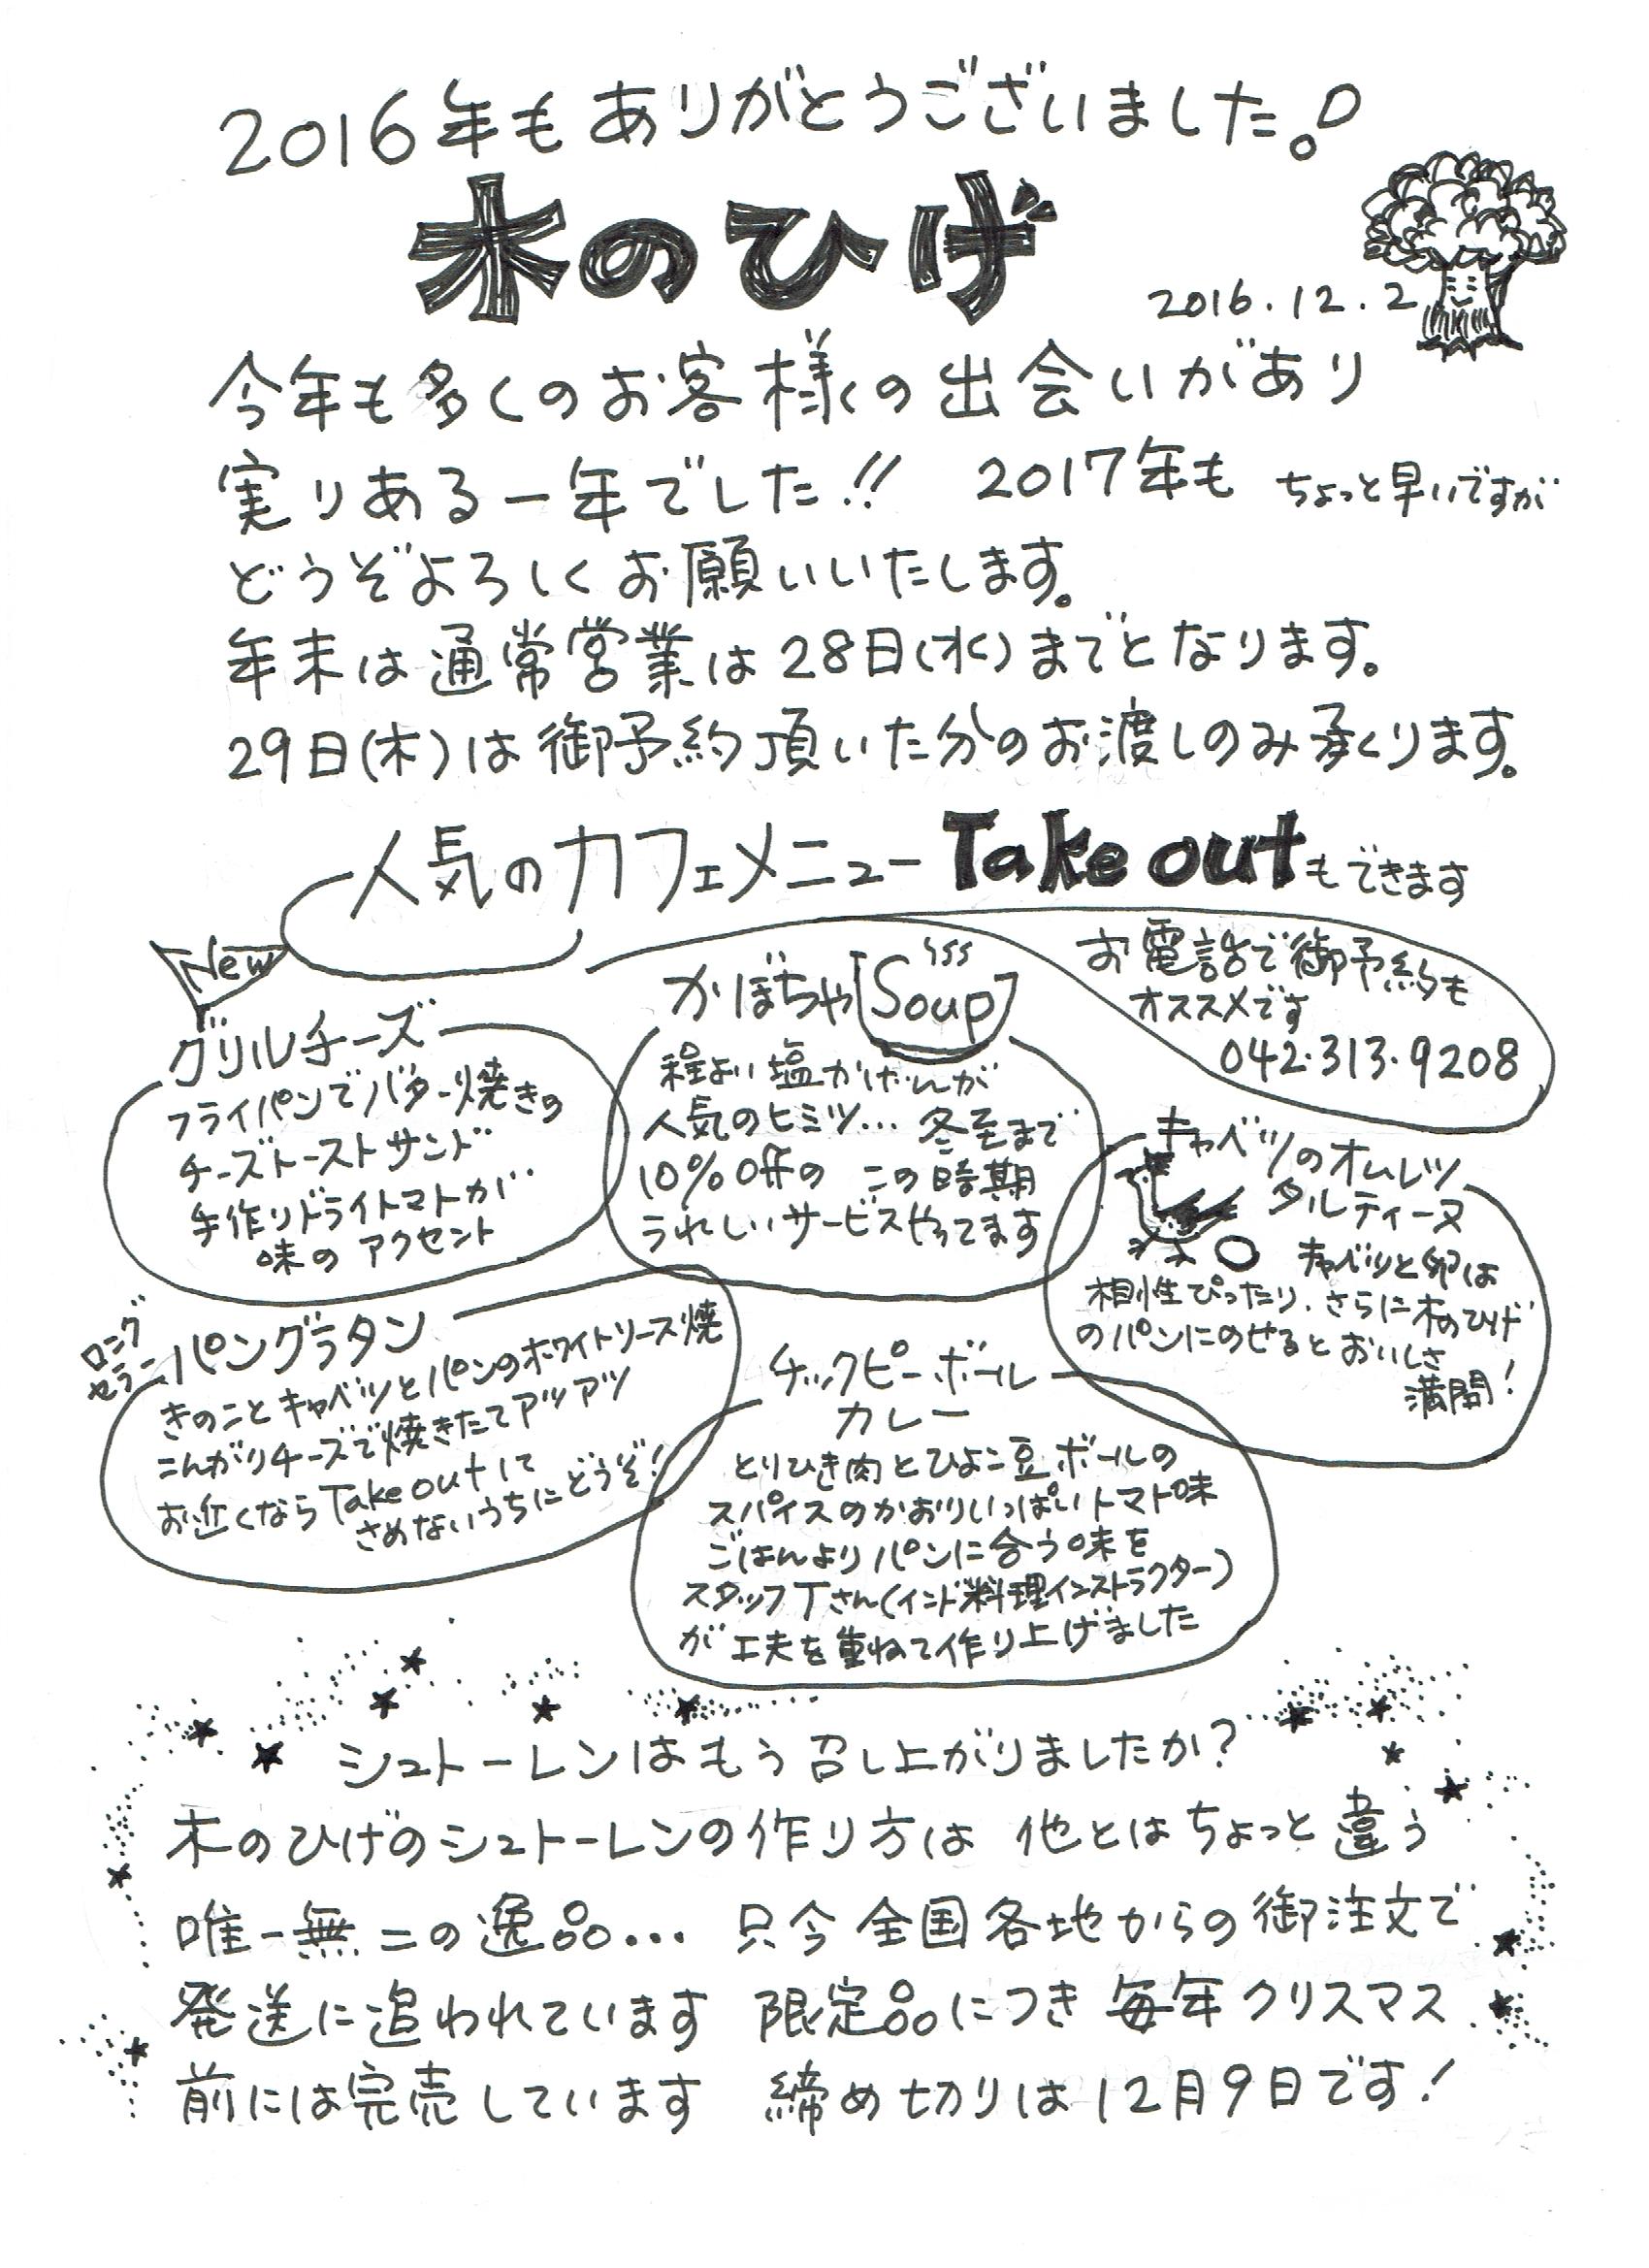 2016年もありがとうございました。!
木のひげ
2016.12.2
今年も多くのお客様との出会いがあり
実りある一年でした!! 2017年も ちょっと早いですが
どうぞよろしくお願いいたします。
年末は通常営業は28日(水)までとなります。
29日(木)は御予約頂いた分のお渡しのみ承くります。
人気のカフェメニュー Take outもできます
お電話で御予約も
オススメです
042.313.9208
New
グリルチーズ
フライパンでバター焼きの
チーズトーストサンド
手作りドライトマトが
味のアクセント
かぼちゃSoup
程よい塩かげんが
人気のヒミツ... 冬至まで
10%Offの この時期
うれしいサービスやってます
キャベツのオムレツ
タルティーヌ
キャベツと卵は
相性ぴったり、さらに木のひげ
のパンにのせるとおいしさ
満開!
ロング
セラー
パングラタン
きのことキャベツとパンのホワイトソース焼
こんがりチーズで焼きたてアツアツ
お近くならTake outして
さめないうちにどうぞ!
チックピーボール
カレー
とりひき肉とひよこ豆ボールの
スパイスのかおりいっぱいトマト味
ごはんよりパンに合う味を
スタッフTさん(インド料理インストラクター)
が工夫を重ねて作り上げました
シュトーレンはもう召し上がりましたか?
木のひげのシュトーレンの作り方は 他とはちょっと違う
唯一無二の逸品... 只今全国各地からの御注文で
発送に追われています 限定品につき毎年クリスマス
前には完売しています 締め切りは12月9日です!